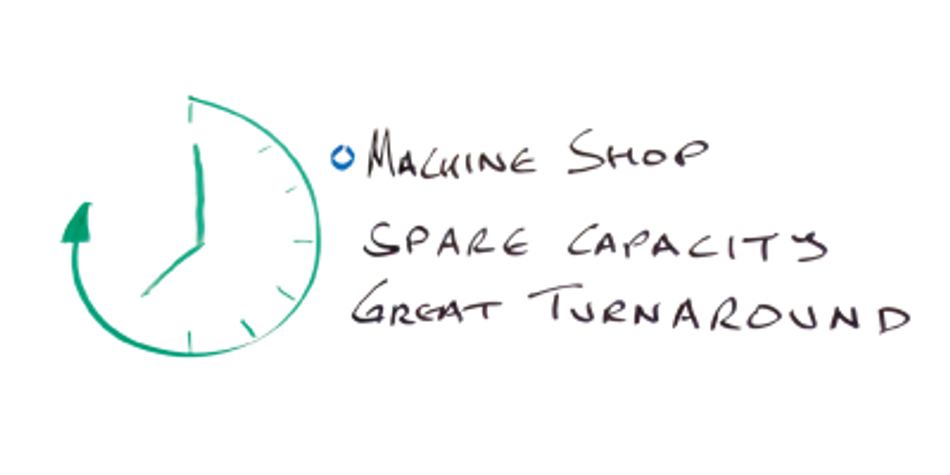 Machine Shop
Spare Capacity
Great Turnaround